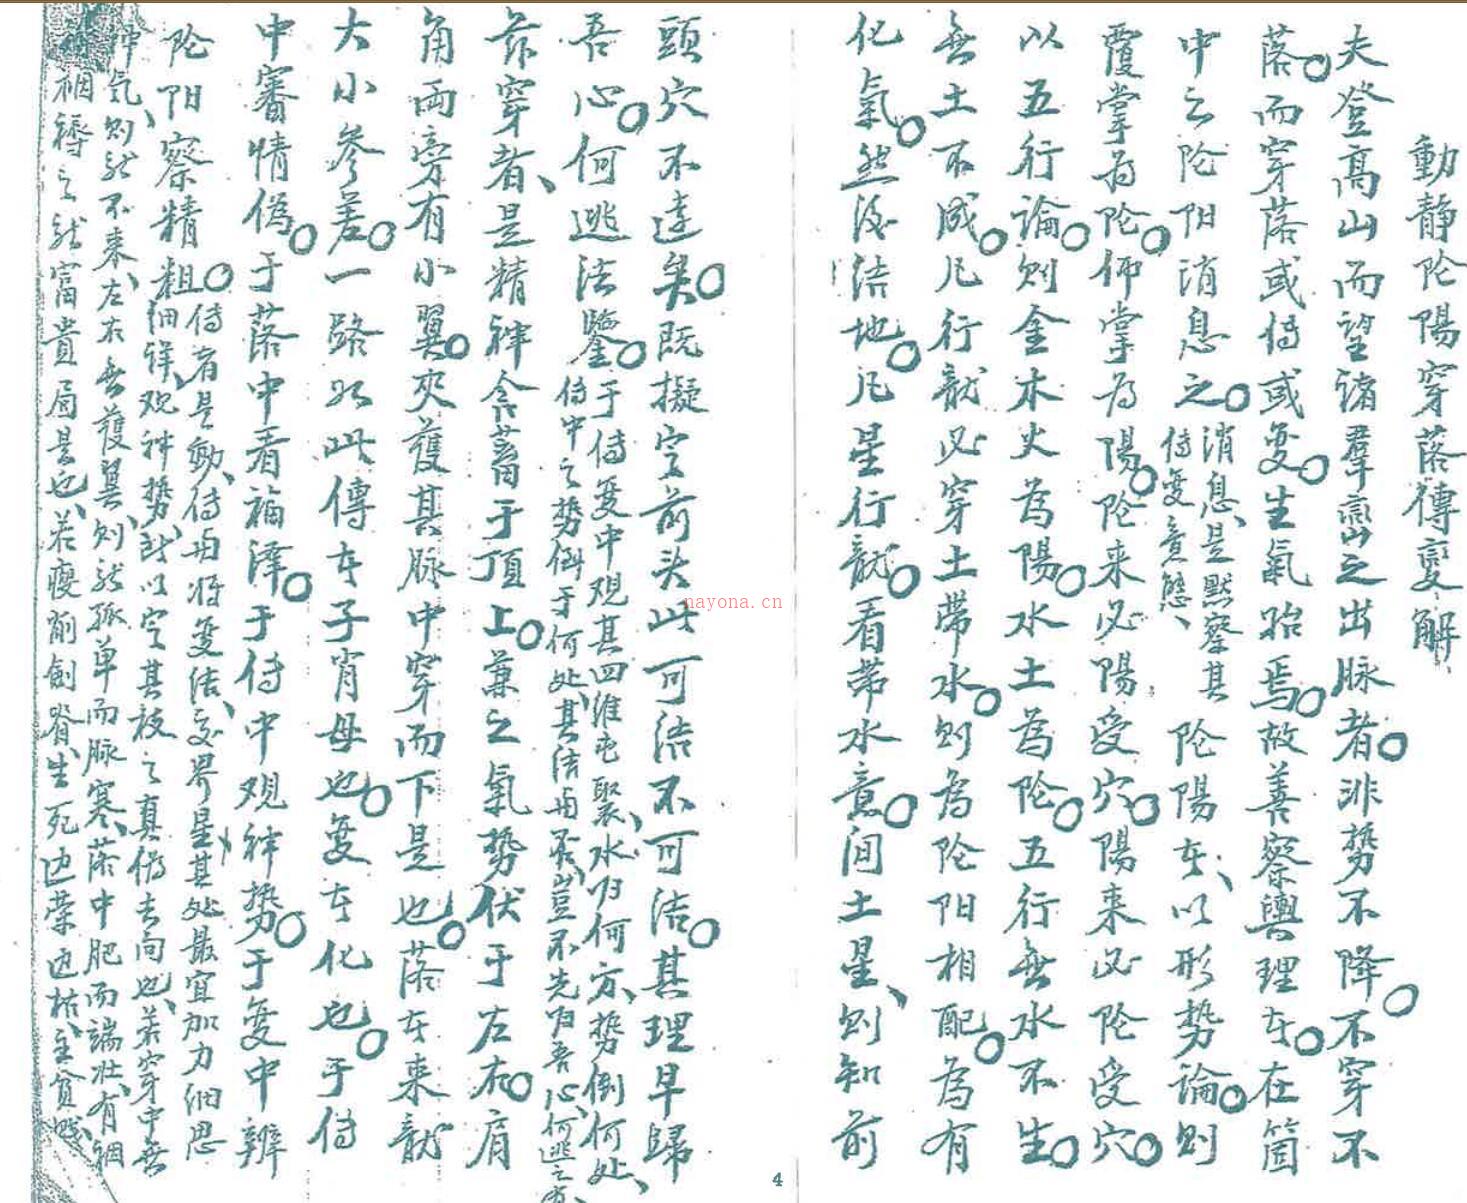 動静阴陽穿落傳变解
夫登高山而望諸羣巒之出脉者非勢不降不穿不
落而穿落或傳或变生氣胎焉故善察輿理者在箇
中之阴阳消息之消息是默察其
傳变意態阴陽者以形勢論则
覆掌為阴仰掌為陽阴来必陽受穴陽来必阴受穴
以五行論则金木火為陽水土為阴五行無水不生
無土不成凡行龍必穿土帶水则為阴阳相配為有
化氣然後结地凡星行龍看帶水意间土星则知前
頭穴不遠矣既擬定前头此可结不可结其理早歸
吾心何逃法鑒于傳变中观其四维屯聚水归何方势倒何处
傳中之势倒于何处其结与否豈不先归吾心何逃之有
故穿者是精神含蓄于頂上兼之氣势伏于左右肩
角两旁有小翼夾護其脉中穿而下是也落者来龍
大小参差一路如此傳者子肖母也变者化也于傳
中審情偽于落中看福泽于傳中观神势于变中辨
阴阳察精粗傳者是動傳与将变结交界星其处最宜加力细思
细详观神势所以定其枝之真伪去向也若穿中無
神气则龍不来左右無護翼则龍孤单而脉寒落中肥而端壮有裀
裀褥之龍富貴局是也若瘦削劍脊生死边荣边枯主貧贱
nayona.cn
4